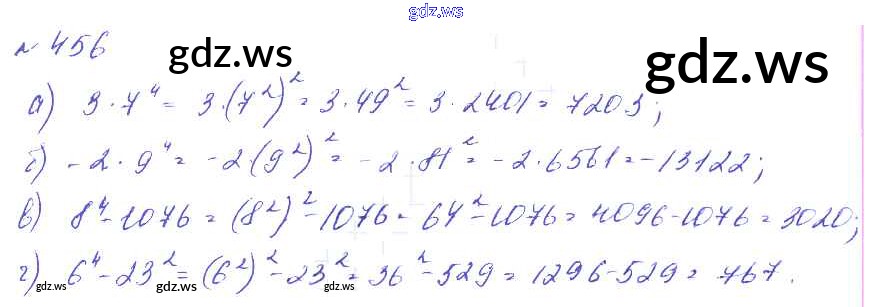 gdz.ws
№ 456
gdz.ws
gdz.ws
а) 3·7⁴ = 3·(7²)² = 3·49² = 3·2401 = 7203;
б) -2·9⁴ = -2(9²)² = -2·81² = -2·6561 = -13122;
в) 8⁴-1076 = (8²)²-1076 = 64²-1076 = 4096-1076 = 3020;
г) 6⁴-23² = (6²)²-23² = 36²-529 = 1296-529 = 767.
gdz.ws gdz.ws gdz.ws gdz.ws gdz.ws